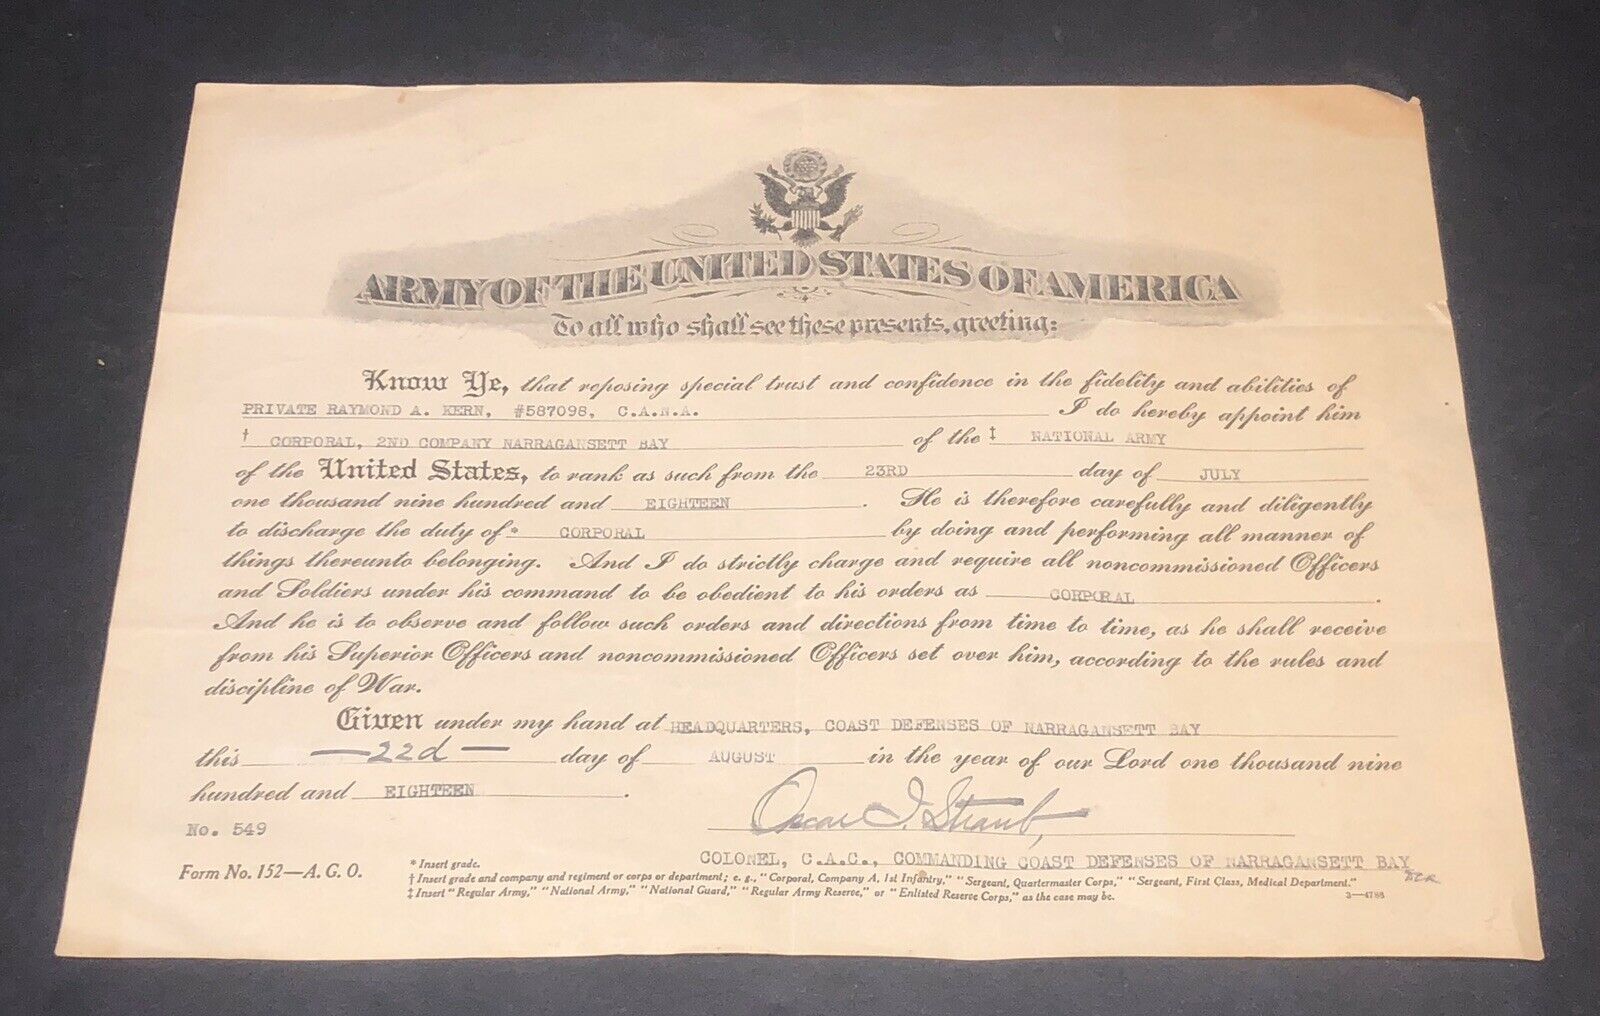 ARMY OF THE UNITED STATES OF AMERICA
To all who shall see these presents, greeting:
Know Ye, that reposing special trust and confidence in the fidelity and abilities of
PRIVATE RAYMOND A. KERN, #587098, C.A.N.A. I do hereby appoint him
† CORPORAL, 2ND COMPANY NARRAGANSETT BAY of the ‡ NATIONAL ARMY
of the United States, to rank as such from the 23RD day of JULY
one thousand nine hundred and EIGHTEEN . He is therefore carefully and diligently
to discharge the duty of * CORPORAL by doing and performing all manner of
things thereunto belonging. And I do strictly charge and require all noncommissioned Officers
and Soldiers under his command to be obedient to his orders as CORPORAL .
And he is to observe and follow such orders and directions from time to time, as he shall receive
from his Superior Officers and noncommissioned Officers set over him, according to the rules and
discipline of War.
Given under my hand at HEADQUARTERS, COAST DEFENSES OF NARRAGANSETT BAY
this —22d— day of AUGUST in the year of our Lord one thousand nine
hundred and EIGHTEEN .
Oscar I. Straub,
No. 549
COLONEL, C.A.C., COMMANDING COAST DEFENSES OF NARRAGANSETT BAY
Form No. 152—A. G. O.
* Insert grade.
† Insert grade and company and regiment or corps or department; e. g., "Corporal, Company A, 1st Infantry," "Sergeant, Quartermaster Corps," "Sergeant, First Class, Medical Department."
‡ Insert "Regular Army," "National Army," "National Guard," "Regular Army Reserve," or "Enlisted Reserve Corps," as the case may be.
3—4788